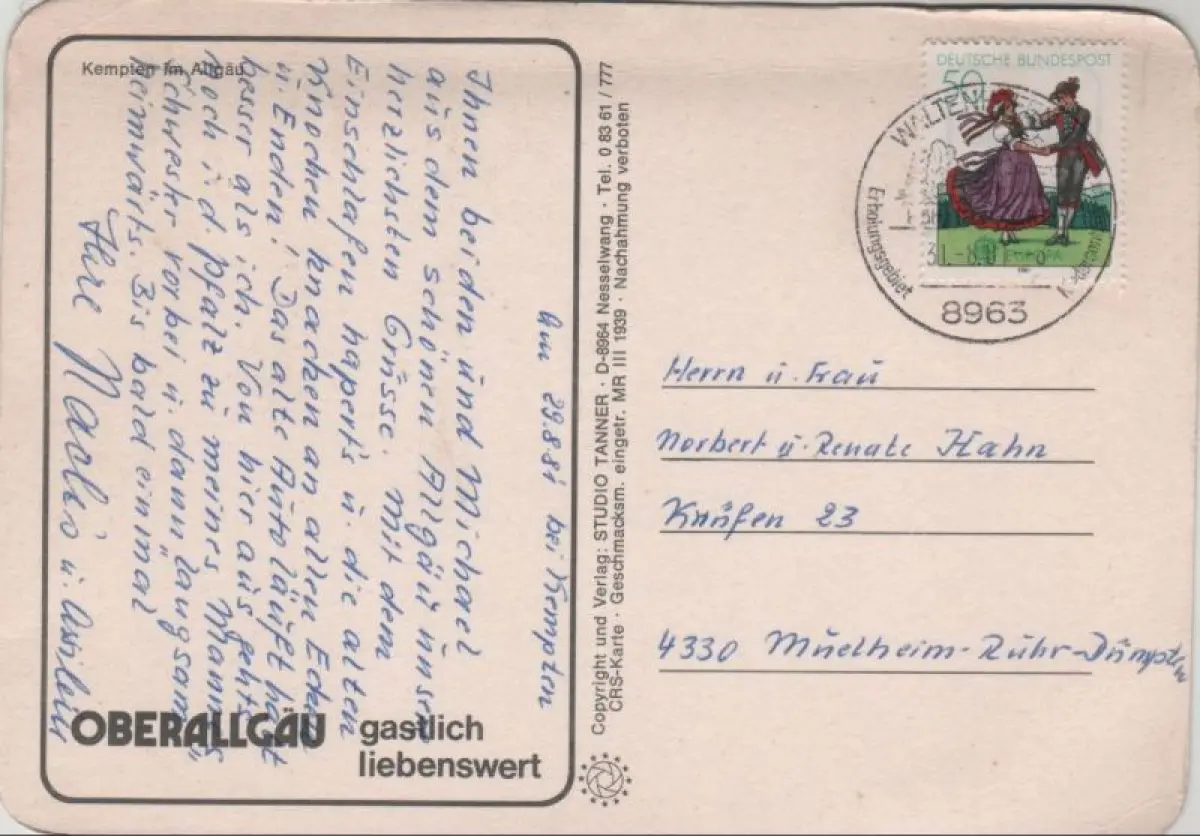 Kempten im Allgäu
Am 29.8.81 bei Kempten
Ihnen beiden und Michael
aus dem schönen Allgäu unsere
herzlichsten Grüsse. Mit dem
Einschlafen hapert's u. die alten
Knochen knacken an allen Ecken
u. Enden! Das alte Auto läuft halt
besser als ich. Von hier aus geht's
noch i. d. Pfalz zu meines Mannes
Schwester vorbei u. dann "langsam"
heimwärts. Bis bald einmal
Ihre
OBERALLGÄU gastlich
liebenswert
Copyright und Verlag: STUDIO TANNER · D-8964 Nesselwang · Tel. 0 83 61 / 777
CRS-Karte · Geschmacksm. eingetr. MR III 1939 · Nachahmung verboten
DEUTSCHE BUNDESPOST
50
EUROPA
WALTEN
Erholungsgebiet
8963
Herrn u. Frau
Norbert u. Renate Hahn
Knüfen 23
4330 Muelheim-Ruhr-Dümpten